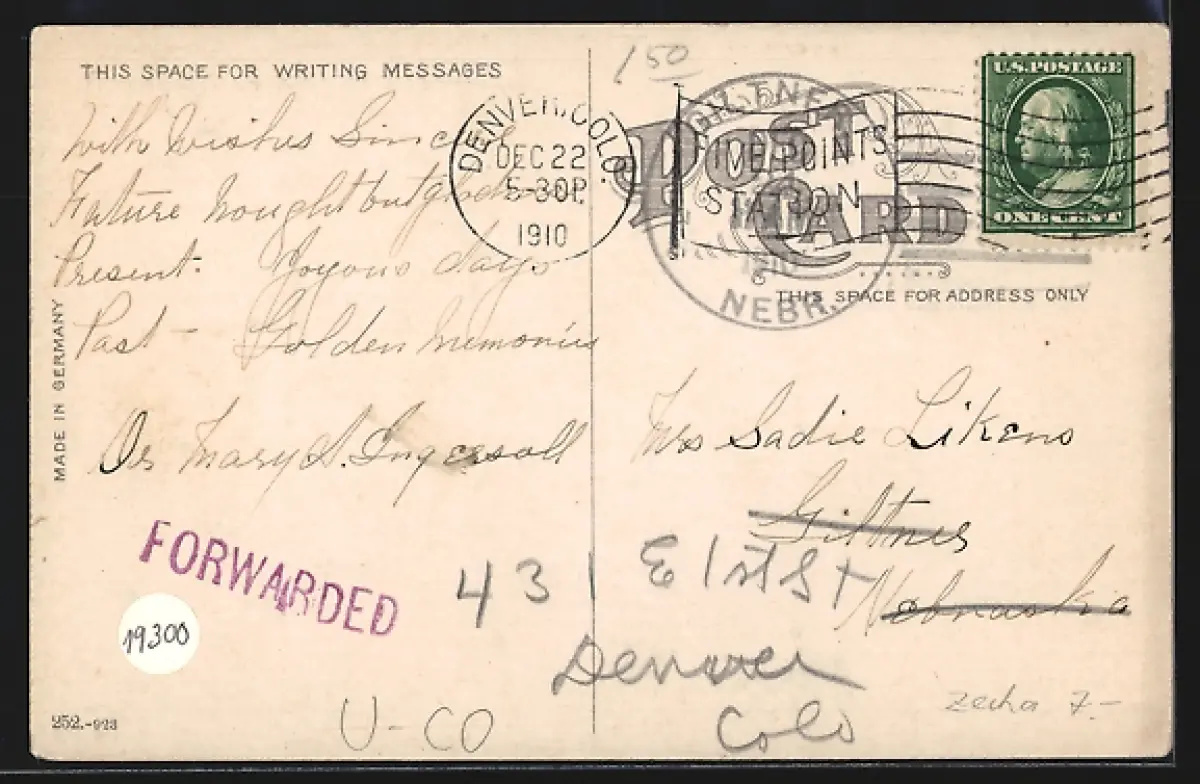 THIS SPACE FOR WRITING MESSAGES
150
U.S. POSTAGE
ONE CENT
DENVER, COLO.
DEC 22
5-30P.
1910
FIVE POINTS
STATION
GILTNER
NEBR.
POST
CARD
THIS SPACE FOR ADDRESS ONLY
With Wishes Sincere
Future Nought but good
Present. Joyous days
Past - Golden Memories
Dr Mary S. Ingersoll
MADE IN GERMANY
Mrs Sadie Likens
Giltner
Nebraska
FORWARDED
431 E 1st St
Denver
Colo
19300
252.-923
U-CO
zecha 7.-